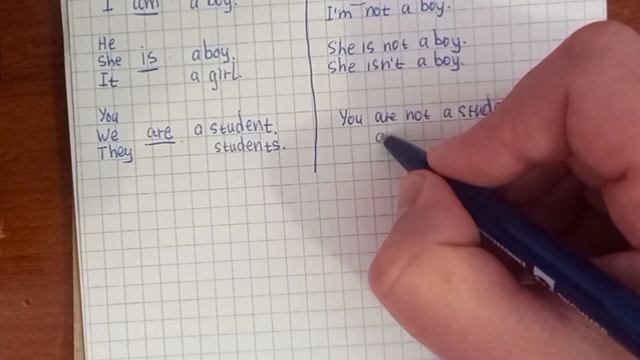 I am a boy.
He
She is a boy.
It a girl.
You
We are a student.
They students.
I'm not a boy.
She is not a boy.
She isn't a boy.
You are not a stude
a